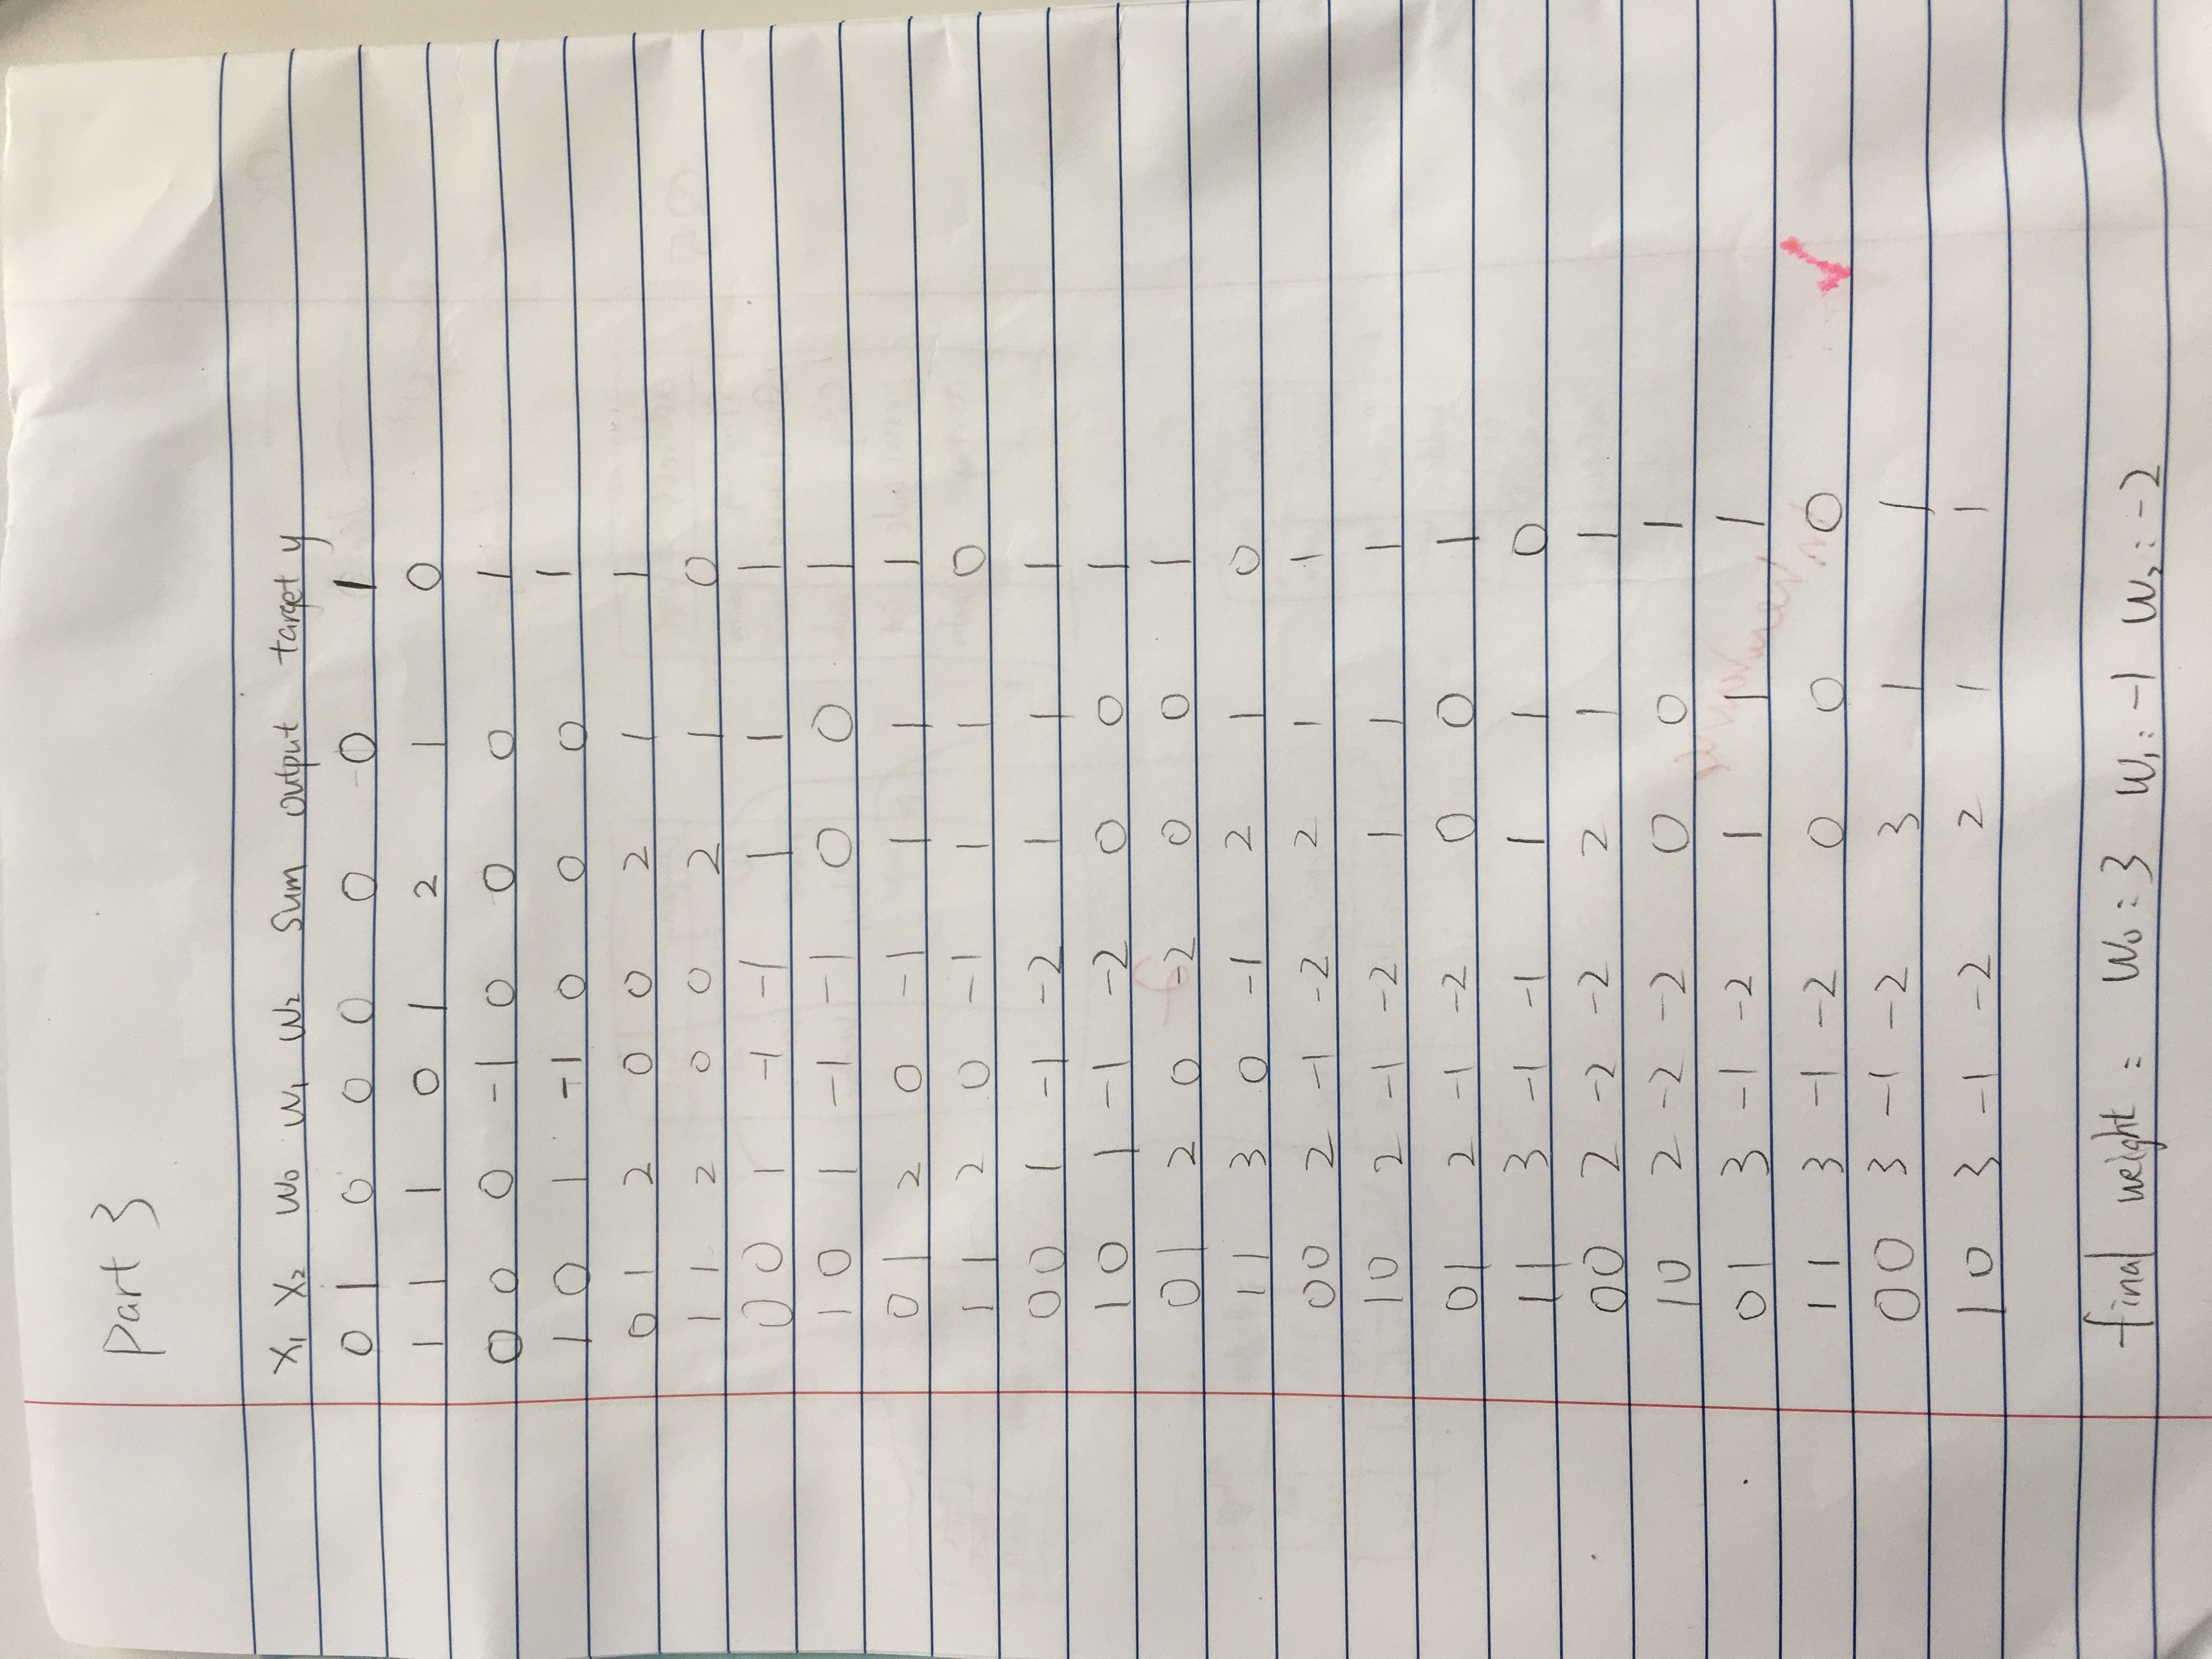 part 3
X₁ X₂ W₀ W₁ W₂ Sum output target y
0 1 0 0 0 0 0 1
1 1 1 0 1 2 1 0
0 0 0 -1 0 0 0 1
1 0 1 -1 0 0 0 1
0 1 2 0 0 2 1 1
1 1 2 0 0 2 1 0
0 0 1 -1 -1 1 1 1
1 0 1 -1 -1 0 0 1
0 1 2 0 -1 1 1 1
1 1 2 0 -1 1 1 0
0 0 1 -1 -2 1 1 1
1 0 1 -1 -2 0 0 1
0 1 2 0 -2 0 0 1
1 1 3 0 -1 2 1 0
0 0 2 -1 -2 2 1 1
1 0 2 -1 -2 1 1 1
0 1 2 -1 -2 0 0 1
1 1 3 -1 -1 1 1 0
0 0 2 -2 -2 2 1 1
1 0 2 -2 -2 0 0 1
0 1 3 -1 -2 1 1 1
1 1 3 -1 -2 0 0 0 ✓
0 0 3 -1 -2 3 1 1
1 0 3 -1 -2 2 1 1
final weight : W₀ : 3 W₁ : -1 W₂ : -2